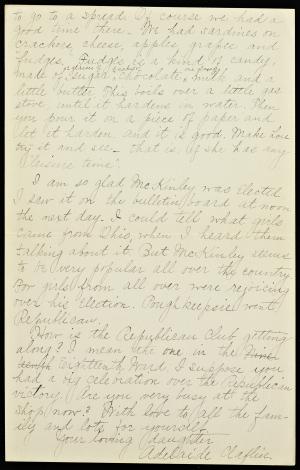 to go to a spread. Of course we had a
good time there. We had sardines on
crackers, cheese, apples, grapes and
fudges. Fudges is a kind of candy,
made of sugar, chocolate, milk and a
little butter. This boils over a little gas
stove, until it hardens in water. Then
you pour it on a piece of paper and
let it harden and it is good. Make
it and see - that is, if she has any
"leisure time".
I am so glad McKinley was elected.
I saw it on the bulletin board at noon
the next day. I could tell what girls
came from Ohio, when I heard them
talking about it. But McKinley seems
to be very popular all over the country
for girls from all over were rejoicing
over his election. Poughkeepsie went
Republican.
How is the Republican Club getting
along? I mean the one in the
Eighteenth Ward. I suppose you
had a big celebration over the Republican
victory. Are you very busy at the
shop now? With love to all the fam-
ily and lots for yourself
Your loving daughter
Adelaide Claflin.